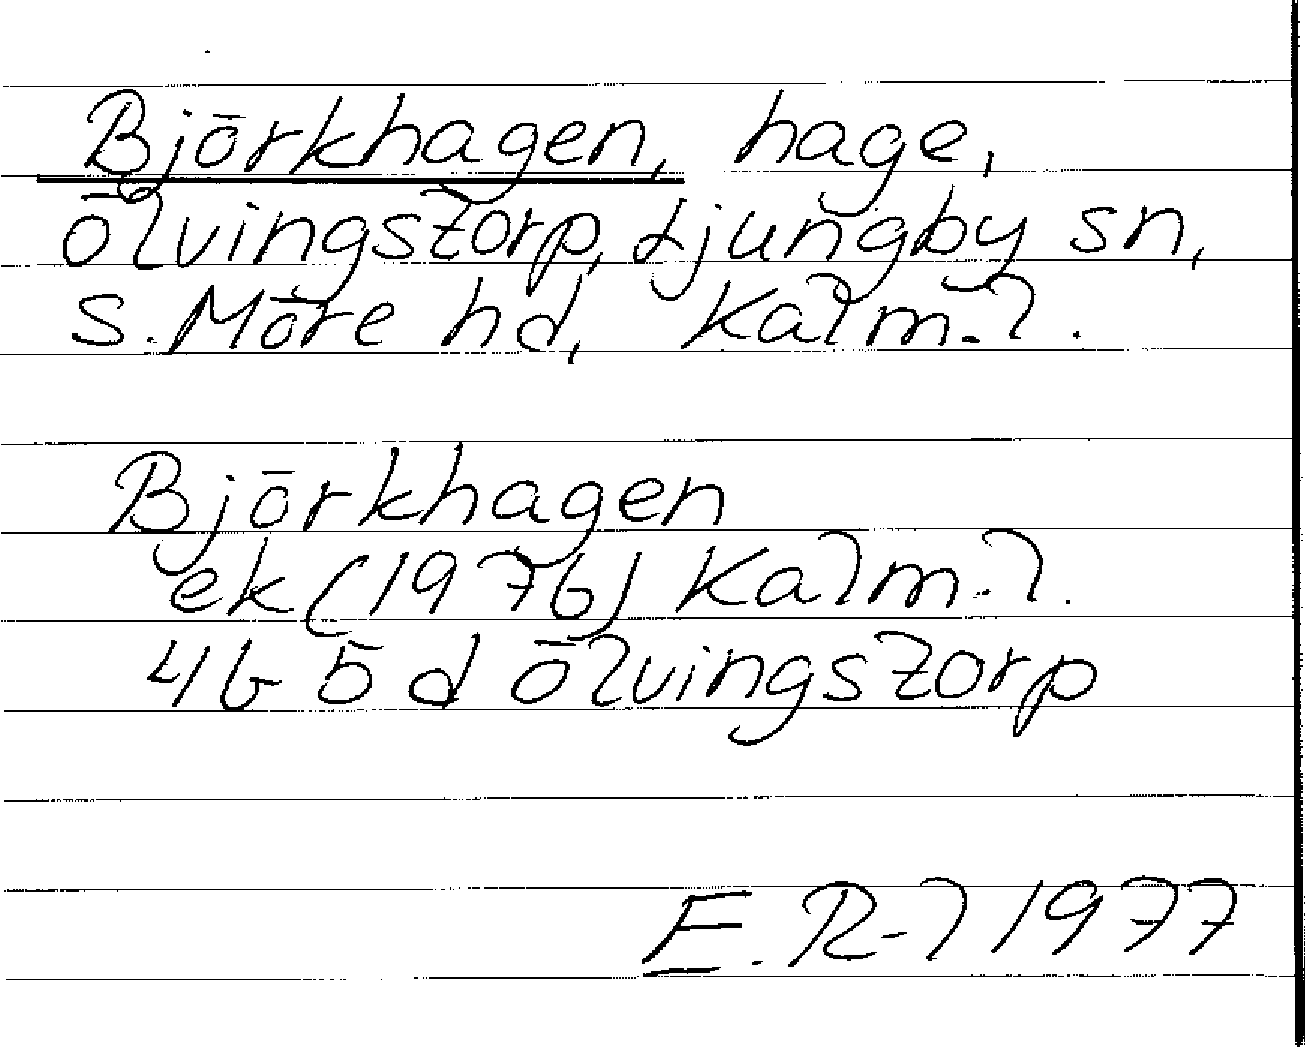 Björkhagen, hage,
Ölvingstorp, Ljungby sn,
S. Möre hd, Kalm. l.
Björkhagen
ek (1976) Kalm. l.
4G 5d Ölvingstorp
E. R-l 1977